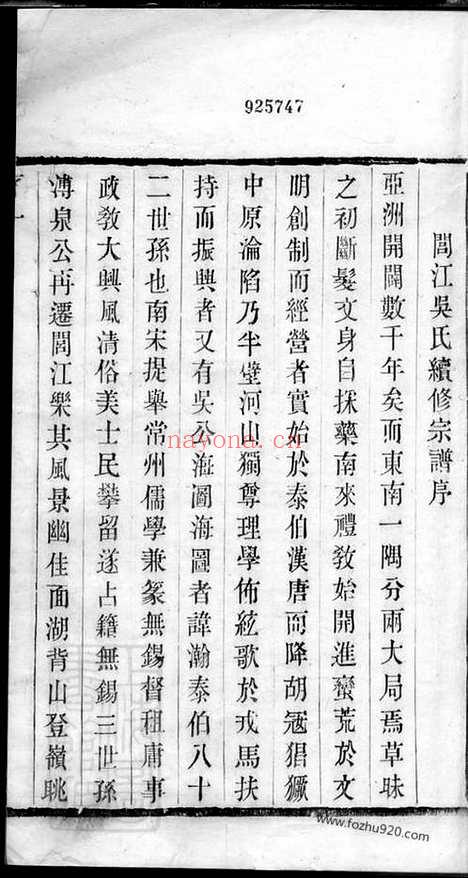 925747
閭江吳氏續修宗譜序
亞洲開闢數千年矣而東南一隅分兩大局焉草昧
之初斷髮文身自採藥南來禮敎始開進蠻荒於文
明創制而經營者實始於泰伯漢唐而降胡寇猖獗
中原淪陷乃半壁河山獨尊理學佈絃歌於戎馬扶
持而振興者又有吳公海圖海圖者諱瀚泰伯八十
二世孫也南宋提舉常州儒學兼篆無錫督租庸事
政敎大興風清俗美士民攀留遂占籍無錫三世孫
溥泉公再遷閭江樂其風景幽佳面湖背山登嶺眺
nayona.cn
www.fozhu920.com